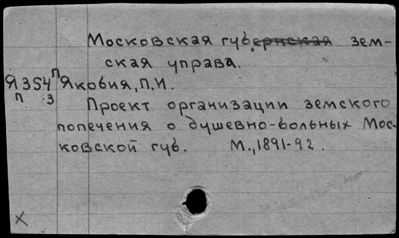 Московская губернская зем-
ская управа.
Я354 п Яковия, П.И.
п :3
Проект организации земского
попечения о душевно-больных Мос-
ковской губ. М., 1891-92.
X